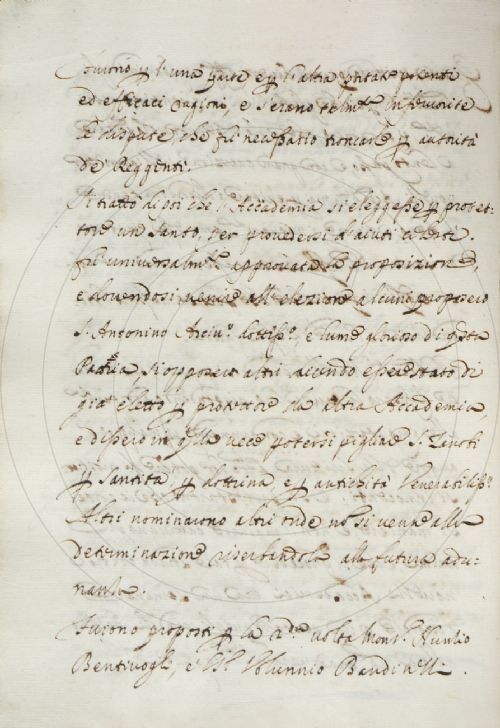 Furono p l'una parte e p l'altra portate potenti
ed efficaci ragioni, e s'erano talm.te infervorite
le dispute, che fù necessario troncare p autorità
de' Reggenti.
Si trattò di poi che l'Accademia si eleggesse p protet:
tore un Santo, per provedersi d'aiuti celesti.
fù universalm.te approvata la proposizione,
e dovendosi venire all'elezione alcuno propose
S. Antonino Arciv.o dottiss.o e lume glorioso di q.sta
Patria, si opposero altri dicendo essere stato di
già eletto p protettore da altra Accademia
e dissero in q.lla vece potersi pigliare S. Zanobi
p santità p dottrina e p antichità Venerabiliss.o
Altri nominarono altri onde no si venne alla
determinazione riserbandola alla futura adu:
nanza.
Furono proposti p la p.a volta Mons.r
Bentivogli, e il S.r Volunnio Bandinelli.